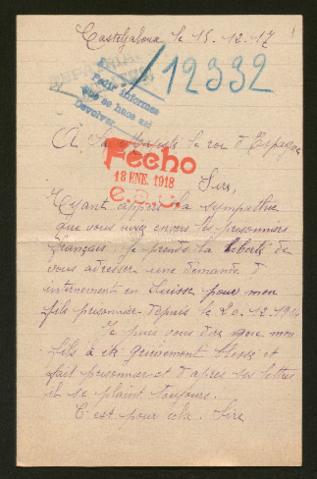 Casteljaloux le 15.12.17
12332
Pedir informes
que se hace así
Devolver
A Sa majesté le roi d'Espagne
Fecho
18 ENE. 1918
Sire,
Ayant appris la sympathie
que vous avez envers les prisonniers
français, je prends la liberté de
vous adresser une demande d
internement en Suisse pour mon
fils prisonnier depuis le 20.12.
Je puis vous dire que mon
fils à été grièvement blessé et
fait prisonnier et d'après ses lettres
il se plaint toujours.
C'est pour cela Sire